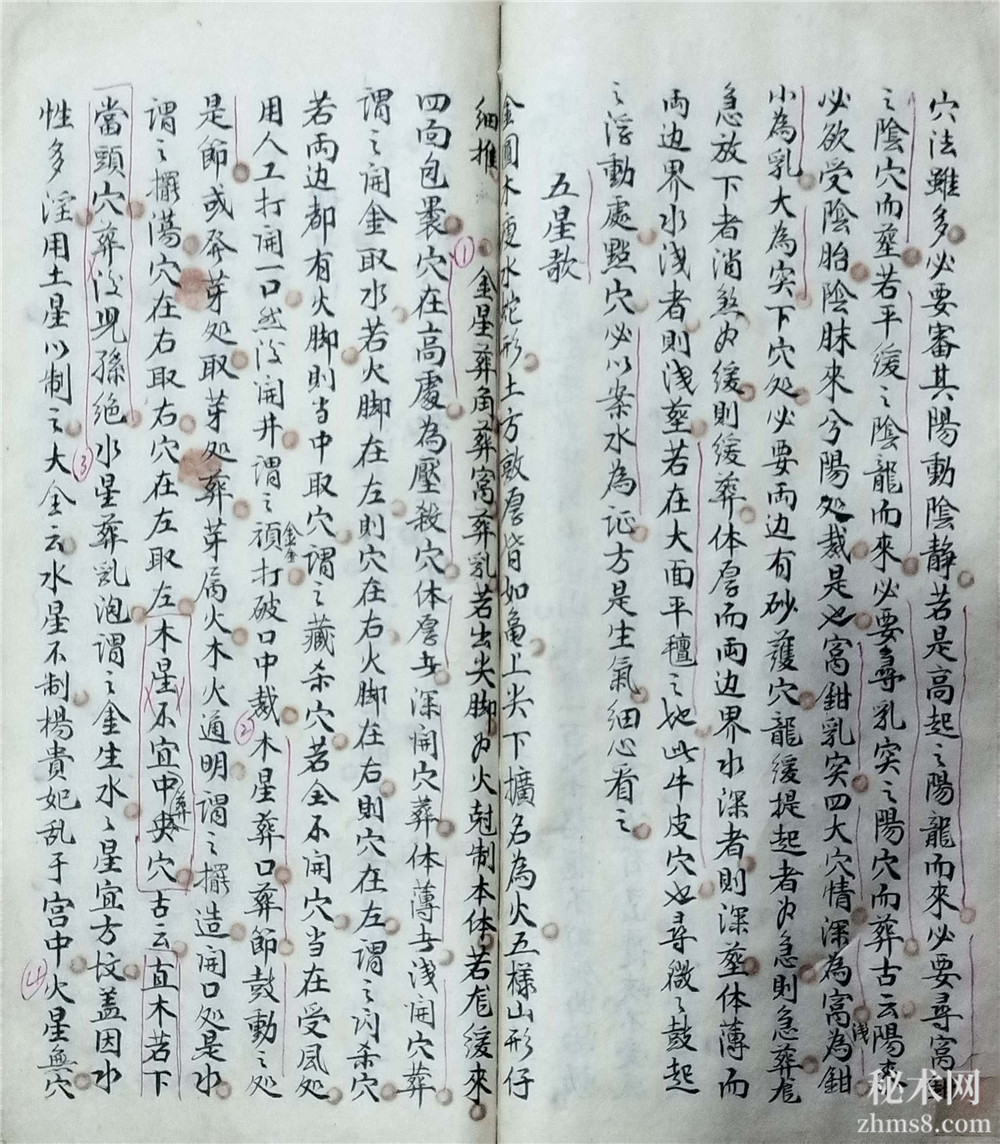 穴法雖多必要審其陽動陰靜若是高起之陽龍而來必要尋窩鉗
之陰穴而塟若平緩之陰龍而來必要尋乳突之陽穴而葬古云陽來
必欲受陰胎陰脉來兮陽处裁是也窩鉗乳突四大穴情深為窩浅為鉗
小為乳大為突下穴处必要两边有砂護穴龍緩提起者為急則急葬龍
急放下者消煞為緩則緩葬体厚而两边界水深者則深塟体薄而
两边界水浅者則浅塟若在大面平氊之地此牛皮穴也尋微々鼓起
之浮動處點穴必以案水為证方是生氣細心看之
五星歌
金圓木直水蛇形土方敦厚皆如龜上尖下擴名為火五樣山形仔
細推
①金星葬角葬窩葬乳若出尖脚為火尅制本体若龍緩來
四面包裹穴在高處為壓殺穴体厚者深開穴葬体薄者浅開穴葬
謂之開金取水若火脚在左則穴在右火脚在右則穴在左謂之闪杀穴
若两边都有火脚則当中取穴謂之藏杀穴若全不開穴当在受風处
用人工打開一口然後開井謂之頑金打破口中裁②木星葬口葬節鼓動之处
是節或発芽处取芽处葬芽属火木火通明謂之擺造開口处是水
謂之擺蕩穴在右取右穴在左取左木星不宜中央葬穴古云直木若下
當頭穴葬後児孫绝③水星葬乳泡謂之金生水々星宜方坟蓋因水
性多淫用土星以制之大全云水星不制楊貴妃乱于宫中④火星無穴
秘术网
zhms8.com